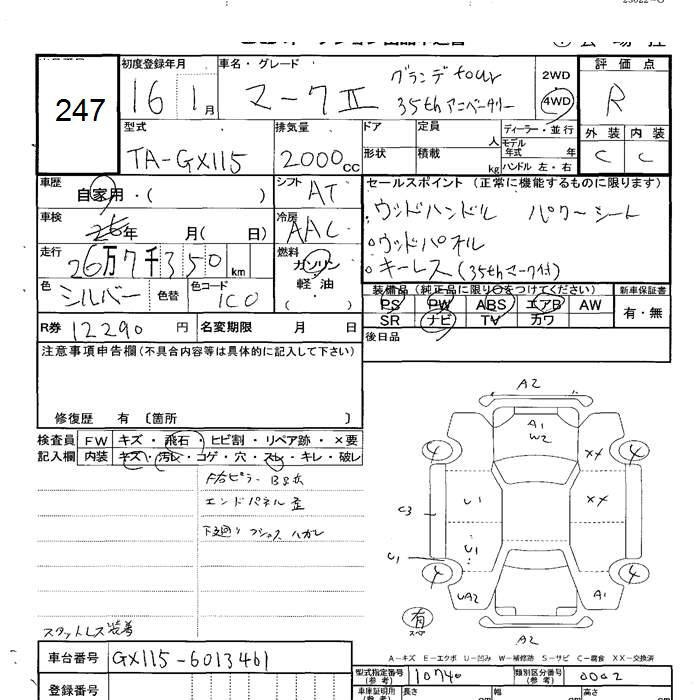 247
初度登録年月
16 1月
車名・グレード
マークⅡ
グランデtour
35thアニバーサリー
2WD
4WD
評価点
R
外装 内装
C C
型式
TA-GX115
排気量
2000cc
ドア
形状
定員 人
積載 kg
ディーラー・並行
モデル年式 年
ハンドル 左・右
車歴
自家用・( )
シフト
AT
車検
26年 月( 日)
冷房
AAC
走行
26万7千350km
燃料
ガソリン
軽油
( ・ )
色
シルバー
色替
色コード
1C0
セールスポイント(正常に機能するものに限ります)
・ウッドハンドル パワーシート
・ウッドパネル
・キーレス(35thマーク付)
装備品(純正品に限り○をつけてください)
新車保証書
PS PW ABS エアB AW
有・無
SR ナビ TV カワ
R券 12290円 名変期限 月 日
後日品
注意事項申告欄(不具合内容等は具体的に記入して下さい)
修復歴 有 〔箇所 〕
検査員 FW キズ・飛石・ヒビ割・リペア跡・×要
記入欄 内装 キズ・汚レ・コゲ・穴・スレ・キレ・破レ
エンドパネル歪
下廻り
スタットレス装着
A2
A1
W2
4 XX 4
U1 XX
C3
U1
U1
4 4
UA2 A1
有
スペア
A2
A-キズ E-エクボ U-凹み W-補修跡 S-サビ C-腐食 XX-交換済
車台番号 GX115-6013461
型式指定番号(参考) 10740 類別区分番号(参考) 0002
登録番号
長さ cm 幅 高さ cm